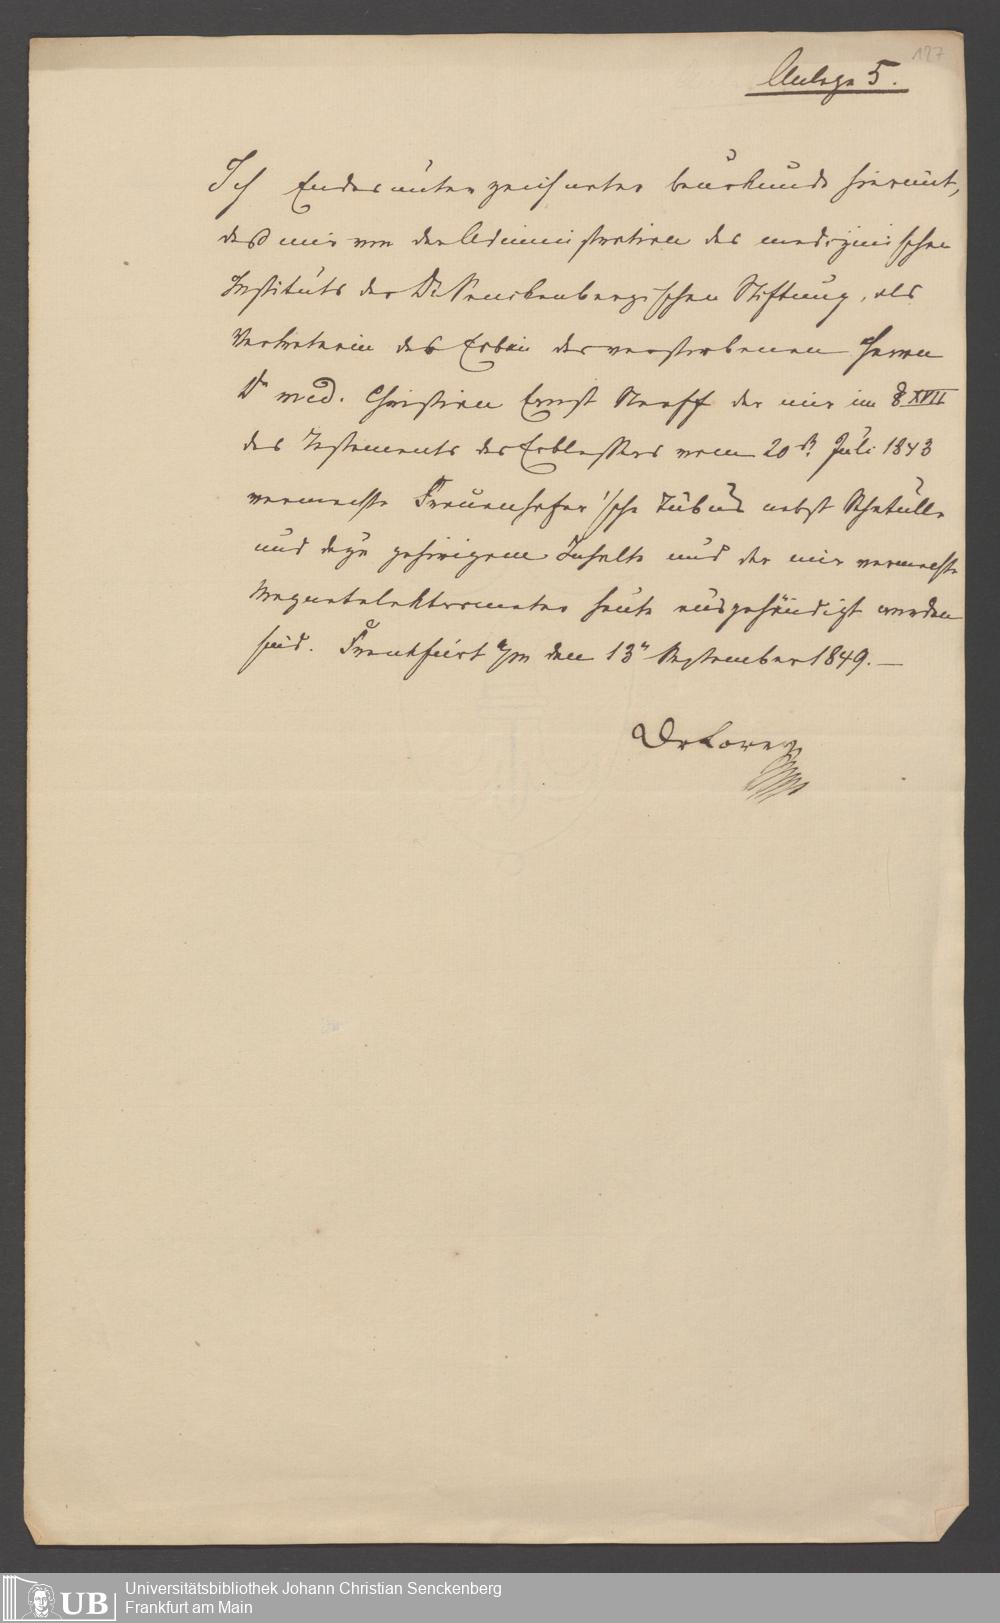 127
Anlage 5.
Ich Endesunterzeichneter beurkunde hiermit,
daß mir von der Administration des medizinischen
Instituts der Dr. Senckenbergischen Stiftung, als
Vertreterin des Erbin des verstorbenen Herrn
Dr med. Christian Ernst Neeff der mir im § XVII
des Testaments des Erblassers vom 20n. Juli 1843
vermachte Frauenhofer'sche Tubus nebst Schatulle
und dazu gehörigem Inhalte und der mir vermachte
Magnetelektrometer heute ausgehändigt worden
sind. Frankfurt a/m den 13n September 1849. —
Dr Lorey
Universitätsbibliothek Johann Christian Senckenberg
Frankfurt am Main
UB